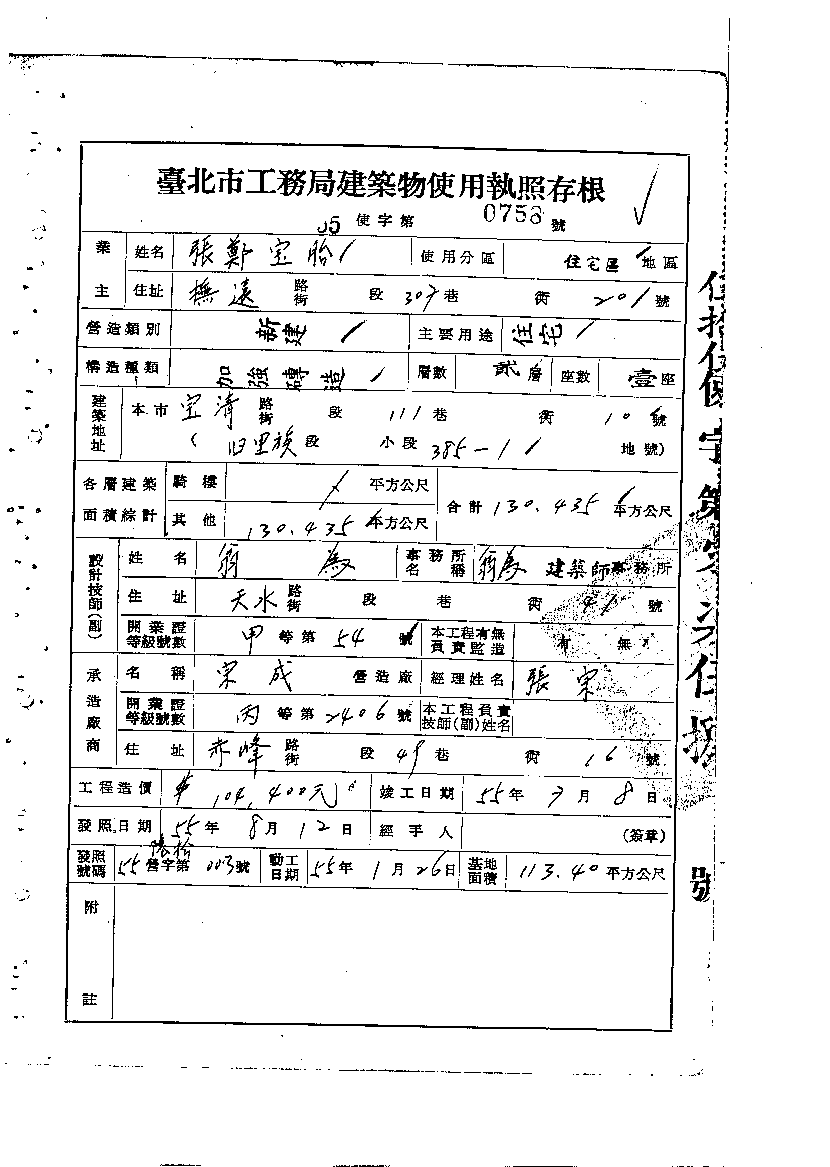 臺北市工務局建築物使用執照存根
55 使字第 0758 號
業主 姓名 張鄭宝胎 使用分區 住宅區 地區
住址 撫遠 路街 段 307 巷 衖 201 號
營造類別 新建 主要用途 住宅
構造種類 加強磚造 層數 貳層 座數 壹座
建築地址 本市 宝清 路街 段 111 巷 衖 10 號
( 旧里族段 小段 385-1 地號)
各層建築面積綜計 騎樓 平方公尺 合計 130.435 平方公尺
其他 130.435 平方公尺
設計技師(副) 姓名 翁為 事務所名稱 翁為 建築師事務所
住址 天水 路街 段 巷 衖 41 號
開業證等級號數 甲 等第 54 號 本工程有無負責監造 有 無
承造廠商 名稱 宋成 營造廠 經理姓名 張宋
開業證等級號數 丙 等第 2406 號 本工程負責技師(副)姓名
住址 赤峰 路街 段 49 巷 衖 16 號
工程造價 104,400元 竣工日期 55年7月8日
發照日期 55年8月12日 經手人 (簽章)
發照號碼 55 營字第 003號 動工日期 55年1月26日 基地面積 113.40 平方公尺
附註
號